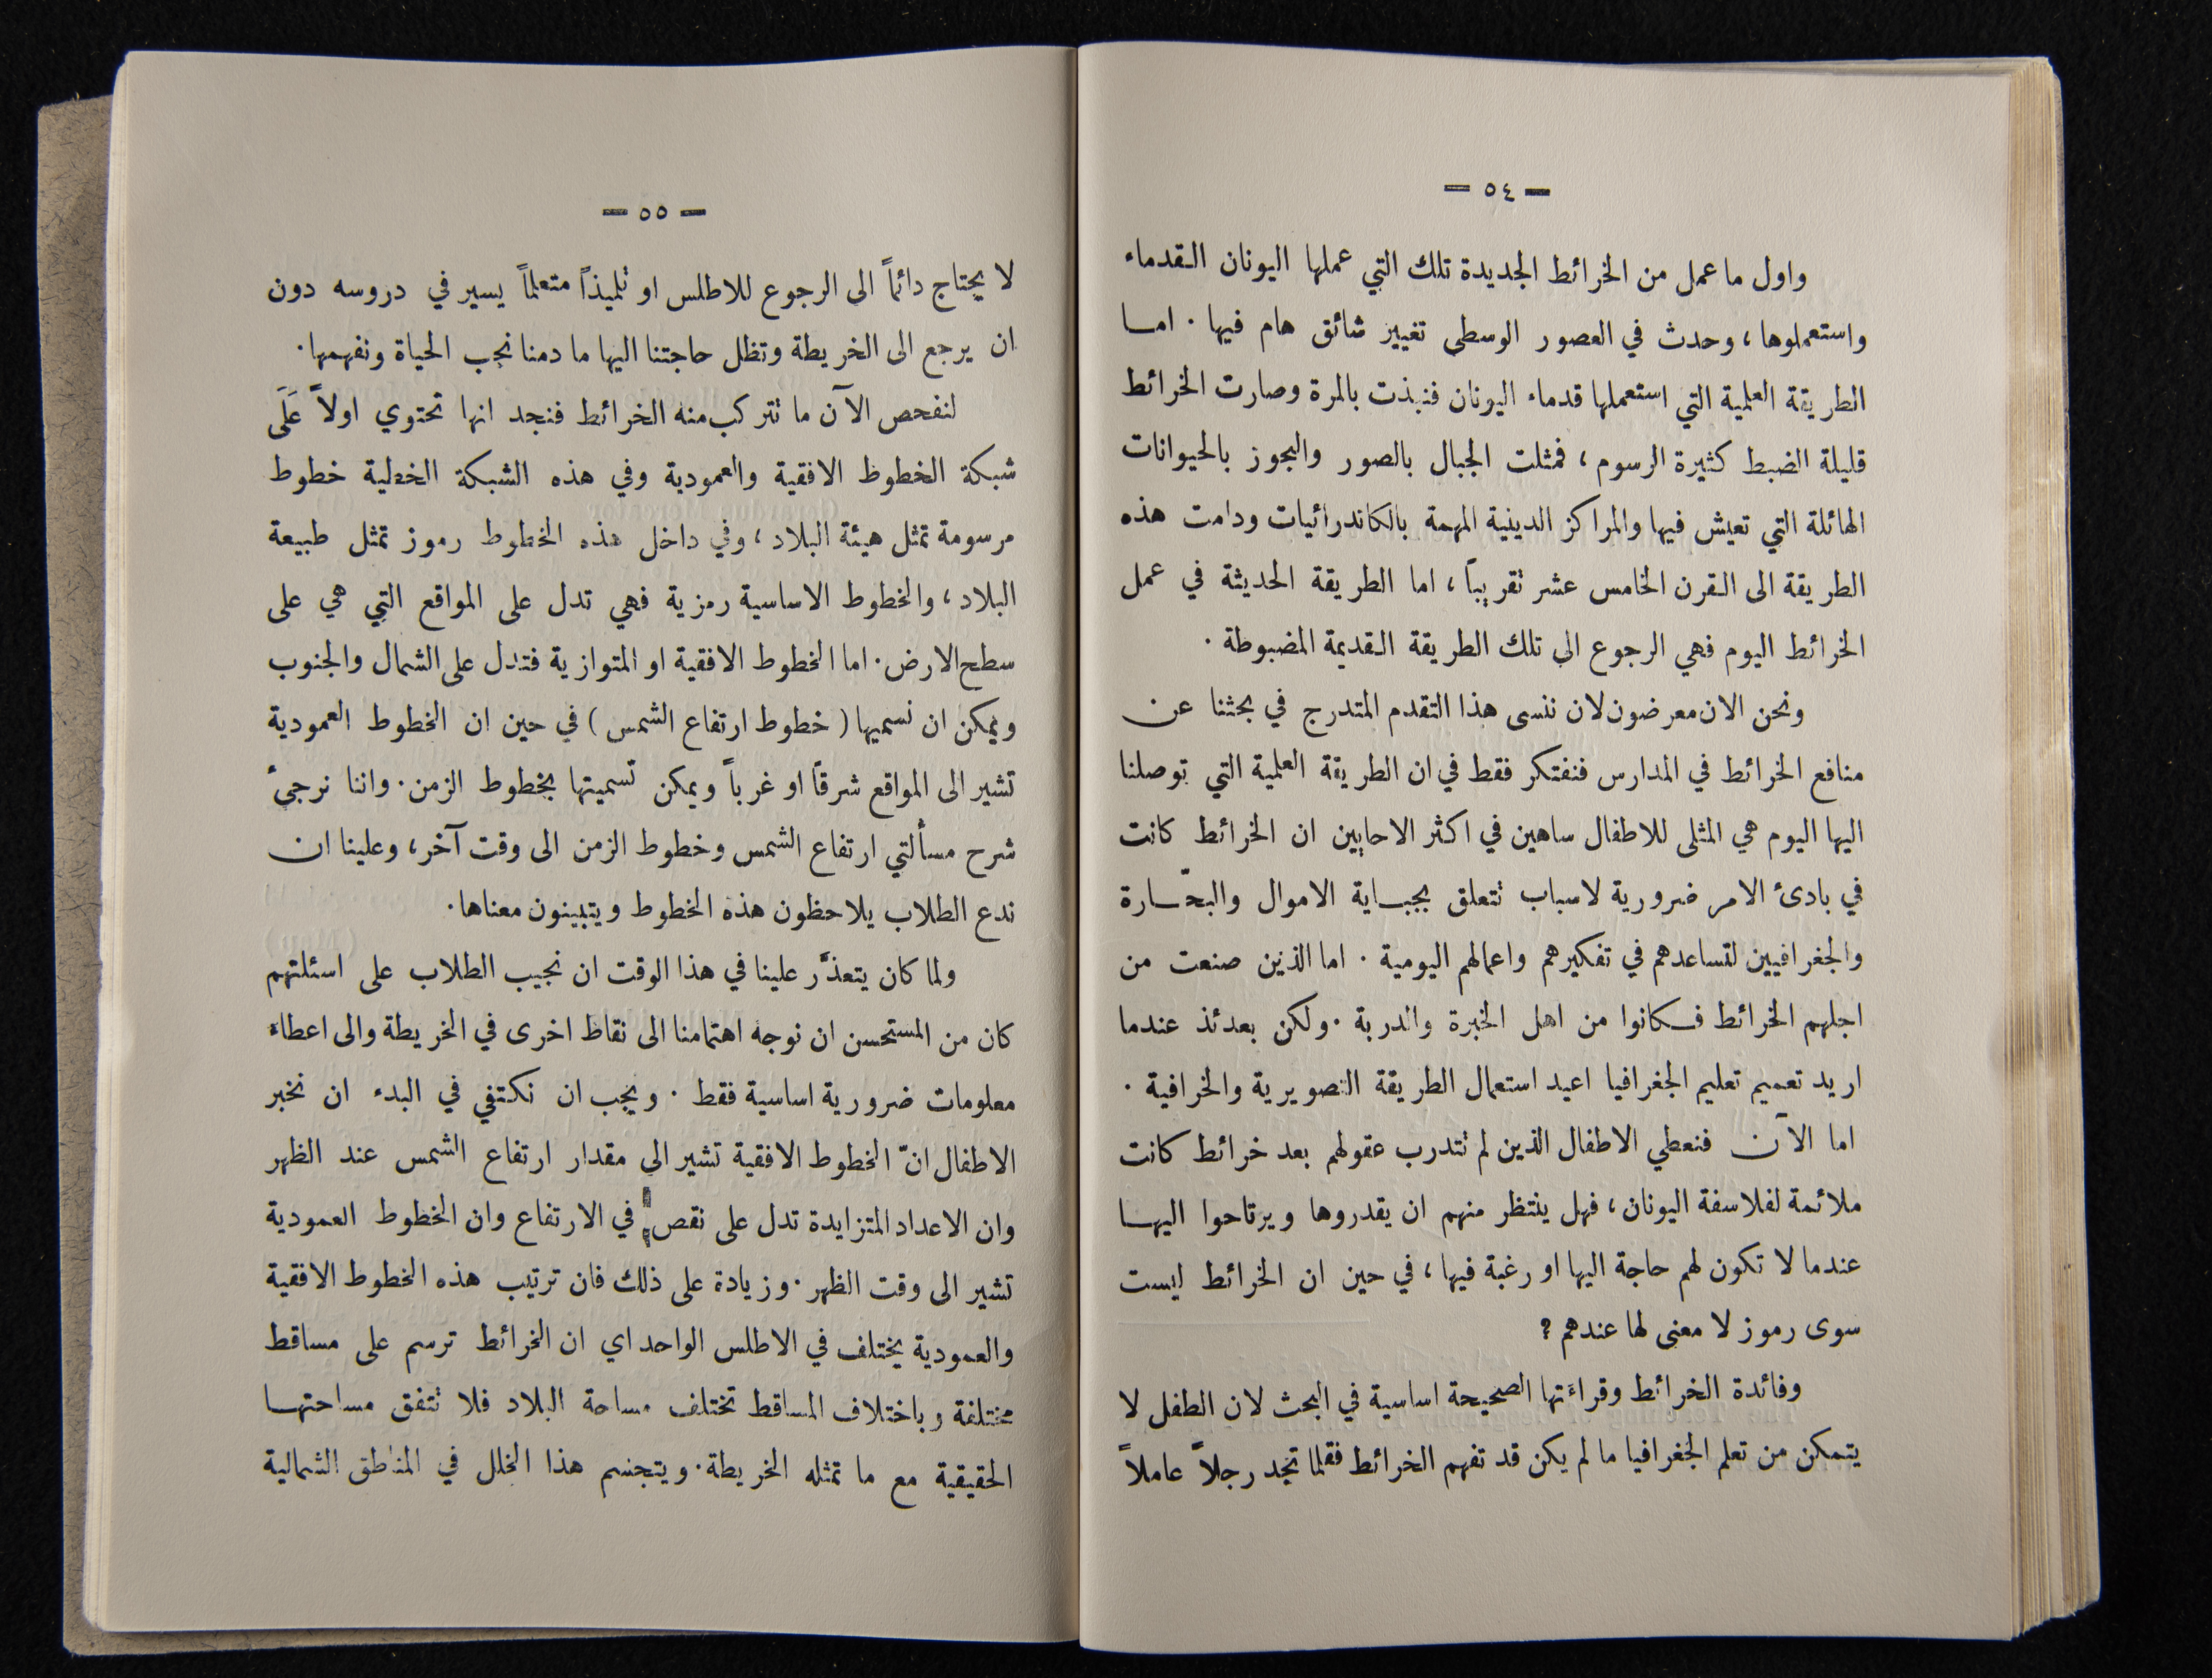 — ٥٤ —
واول ما عمل من الخرائط الجديدة تلك التي عملها اليونان القدماء
واستعملوها ، وحدث في العصور الوسطى تغيير شائق هام فيها . اما
الطريقة العلمية التي استعملها قدماء اليونان فنبذت بالمرة وصارت الخرائط
قليلة الضبط كثيرة الرسوم ، فمثلت الجبال بالصور والبحور بالحيوانات
الهائلة التي تعيش فيها والمراكز الدينية المهمة بالكاتدرائيات ودامت هذه
الطريقة الى القرن الخامس عشر تقريباً ، اما الطريقة الحديثة في عمل
الخرائط اليوم فهي الرجوع الى تلك الطريقة القديمة المضبوطة .
ونحن الان معرضون لان ننسى هذا التقدم المتدرج في بحثنا عن
منافع الخرائط في المدارس فنفتكر فقط في ان الطريقة العلمية التي توصلنا
اليها اليوم هي المثلى للاطفال ساهين في اكثر الاحايين ان الخرائط كانت
في بادئ الامر ضرورية لاسباب تتعلق بجباية الاموال والبحّارة
والجغرافيين لتساعدهم في تفكيرهم واعمالهم اليومية . اما الذين صنعت من
اجلهم الخرائط فكانوا من اهل الخبرة والدربة . ولكن بعدئذ عندما
اريد تعميم تعليم الجغرافيا اعيد استعمال الطريقة التصويرية والخرافية .
اما الآن فنعطي الاطفال الذين لم تتدرب عقولهم بعد خرائط كانت
ملائمة لفلاسفة اليونان ، فهل ينتظر منهم ان يقدروها ويرتاحوا اليها
عندما لا تكون لهم حاجة اليها او رغبة فيها ، في حين ان الخرائط ليست
سوى رموز لا معنى لها عندهم ?
وفائدة الخرائط وقراءتها الصحيحة اساسية في البحث لان الطفل لا
يتمكن من تعلم الجغرافيا ما لم يكن قد تفهم الخرائط فقلما تجد رجلاً عاملاً
— ٥٥ —
لا يحتاج دائماً الى الرجوع للاطلس او تلميذاً متعلماً يسير في دروسه دون
ان يرجع الى الخريطة وتظل حاجتنا اليها ما دمنا نحب الحياة ونفهمها .
لنفحص الآن ما تتركب منه الخرائط فنجد انها تحتوي اولاً عَلَى
شبكة الخطوط الافقية والعمودية وفي هذه الشبكة الخطية خطوط
مرسومة تمثل هيئة البلاد ، وفي داخل هذه الخطوط رموز تمثل طبيعة
البلاد ، والخطوط الاساسية رمزية فهي تدل على المواقع التي هي على
سطح الارض . اما الخطوط الافقية او المتوازية فتدل على الشمال والجنوب
ويمكن ان نسميها ( خطوط ارتفاع الشمس ) في حين ان الخطوط العمودية
تشير الى المواقع شرقاً او غرباً ويمكن تسميتها بخطوط الزمن . واننا نرجئ
شرح مسألتي ارتفاع الشمس وخطوط الزمن الى وقت آخر ، وعلينا ان
ندع الطلاب يلاحظون هذه الخطوط ويتبينون معناها .
ولما كان يتعذَّر علينا في هذا الوقت ان نجيب الطلاب على اسئلتهم
كان من المستحسن ان نوجه اهتمامنا الى نقاط اخرى في الخريطة والى اعطاء
معلومات ضرورية اساسية فقط . ويجب ان نكتفي في البدء ان نخبر
الاطفال انّ الخطوط الافقية تشير الى مقدار ارتفاع الشمس عند الظهر
وان الاعداد المتزايدة تدل على نقص في الارتفاع وان الخطوط العمودية
تشير الى وقت الظهر . وزيادة على ذلك فان ترتيب هذه الخطوط الافقية
والعمودية يختلف في الاطلس الواحد اي ان الخرائط ترسم على مساقط
مختلفة وباختلاف المساقط تختلف مساحة البلاد فلا تتفق مساحتها
الحقيقية مع ما تمثله الخريطة . ويتجسم هذا الخلل في المناطق الشمالية